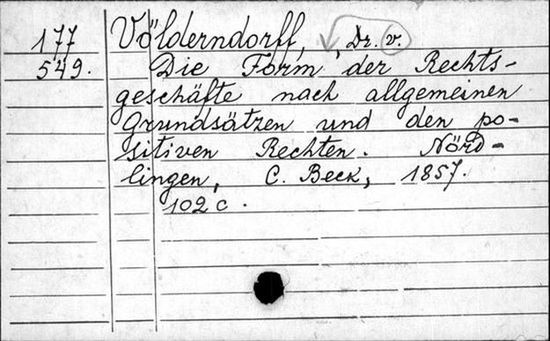 177
549.
Völderndorff, , Dr. v.
Die Form der Rechts-
geschäfte nach allgemeinen
Grundsätzen und den po-
sitiven Rechten. Nörd-
lingen, C. Beck, 1857.
102 c.